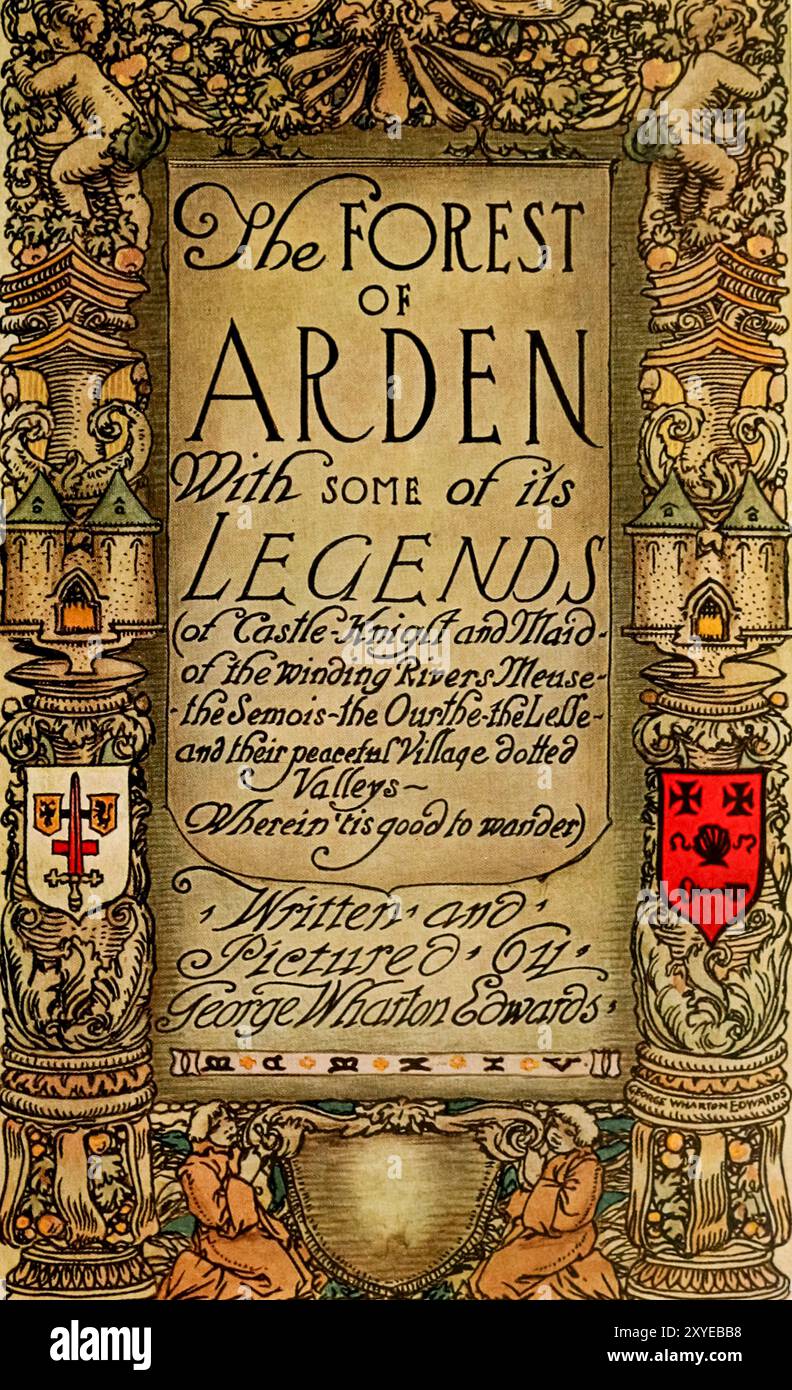 The FOREST
OF
ARDEN
With SOME of its
LEGENDS
(of Castle-Knight and Maid-
of the winding Rivers Meuse-
-the Semois-the Ourthe-the Lesse-
and their peaceful Village dotted
Valleys~
Wherein 'tis good to wander)
·Written·and·
Pictured·by·
George Wharton Edwards·
M·D·M·X·I·V
GEORGE WHARTON EDWARDS
alamy
Image ID: 2XYEBB8
www.alamy.com